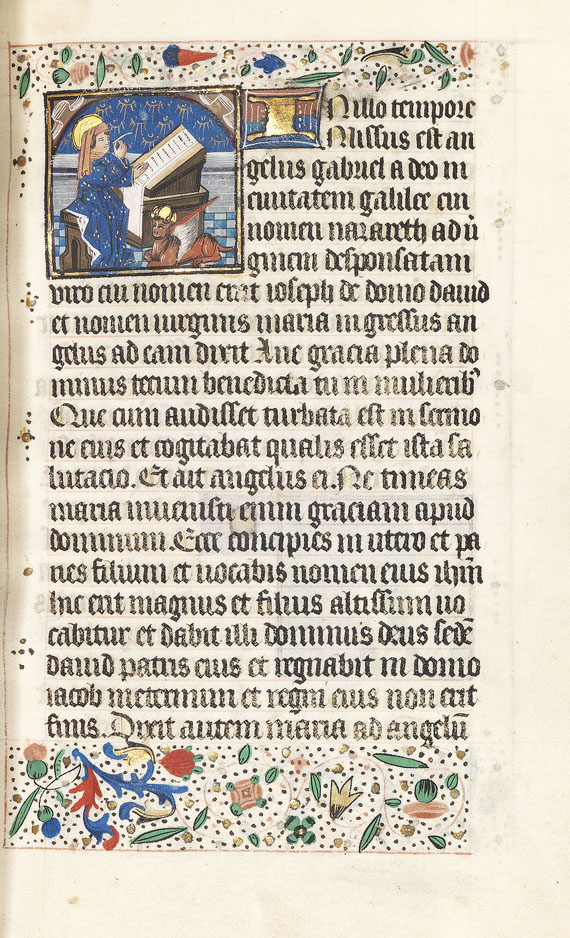 In illo tempore
Missus est an
gelus gabriel a deo in
ciuitatem galilee cui
nomen nazareth ad uir
ginem desponsatam
viro cui nomen erat ioseph de domo dauid
et nomen uirginis maria ingressus an
gelus ad eam dixit Aue gracia plena do
minus tecum benedicta tu in mulierib⁹
Que cum audisset turbata est in sermo
ne eius et cogitabat qualis esset ista sa
lutacio. Et ait angelus ei. Ne timeas
maria inuenisti enim graciam apud
dominum. Ecce concipies in utero et pa
ries filium et uocabis nomen eius ihm̄
hic erit magnus et filius altissimi uo
cabitur et dabit illi dominus deus sedē
dauid patris eius et regnabit in domo
iacob in eternum et regni eius non erit
finis. Dixit autem maria ad angelū